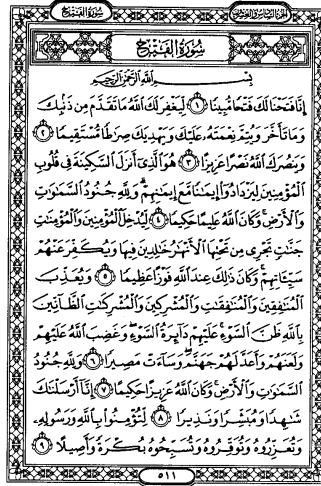 سُورَةُ الفَتْحِ الجزء السادس والعشرون
سُورَةُ الفَتْحِ
بِسْمِ اللَّهِ الرَّحْمَٰنِ الرَّحِيمِ
إِنَّا فَتَحْنَا لَكَ فَتْحًا مُّبِينًا ١ لِّيَغْفِرَ لَكَ اللَّهُ مَا تَقَدَّمَ مِن ذَنۢبِكَ
وَمَا تَأَخَّرَ وَيُتِمَّ نِعْمَتَهُۥ عَلَيْكَ وَيَهْدِيَكَ صِرَٰطًا مُّسْتَقِيمًا ٢
وَيَنصُرَكَ اللَّهُ نَصْرًا عَزِيزًا ٣ هُوَ الَّذِىٓ أَنزَلَ السَّكِينَةَ فِى قُلُوبِ
الْمُؤْمِنِينَ لِيَزْدَادُوٓا۟ إِيمَٰنًا مَّعَ إِيمَٰنِهِمْ ۗ وَلِلَّهِ جُنُودُ السَّمَٰوَٰتِ
وَالْأَرْضِ ۚ وَكَانَ اللَّهُ عَلِيمًا حَكِيمًا ٤ لِّيُدْخِلَ الْمُؤْمِنِينَ وَالْمُؤْمِنَٰتِ
جَنَّٰتٍ تَجْرِى مِن تَحْتِهَا الْأَنْهَٰرُ خَٰلِدِينَ فِيهَا وَيُكَفِّرَ عَنْهُمْ
سَيِّـَٔاتِهِمْ ۚ وَكَانَ ذَٰلِكَ عِندَ اللَّهِ فَوْزًا عَظِيمًا ٥ وَيُعَذِّبَ
الْمُنَٰفِقِينَ وَالْمُنَٰفِقَٰتِ وَالْمُشْرِكِينَ وَالْمُشْرِكَٰتِ الظَّآنِّينَ
بِاللَّهِ ظَنَّ السَّوْءِ ۚ عَلَيْهِمْ دَآئِرَةُ السَّوْءِ ۖ وَغَضِبَ اللَّهُ عَلَيْهِمْ
وَلَعَنَهُمْ وَأَعَدَّ لَهُمْ جَهَنَّمَ ۖ وَسَآءَتْ مَصِيرًا ٦ وَلِلَّهِ جُنُودُ
السَّمَٰوَٰتِ وَالْأَرْضِ ۚ وَكَانَ اللَّهُ عَزِيزًا حَكِيمًا ٧ إِنَّآ أَرْسَلْنَٰكَ
شَٰهِدًا وَمُبَشِّرًا وَنَذِيرًا ٨ لِّتُؤْمِنُوا۟ بِاللَّهِ وَرَسُولِهِۦ
وَتُعَزِّرُوهُ وَتُوَقِّرُوهُ وَتُسَبِّحُوهُ بُكْرَةً وَأَصِيلًا ٩
٥١١